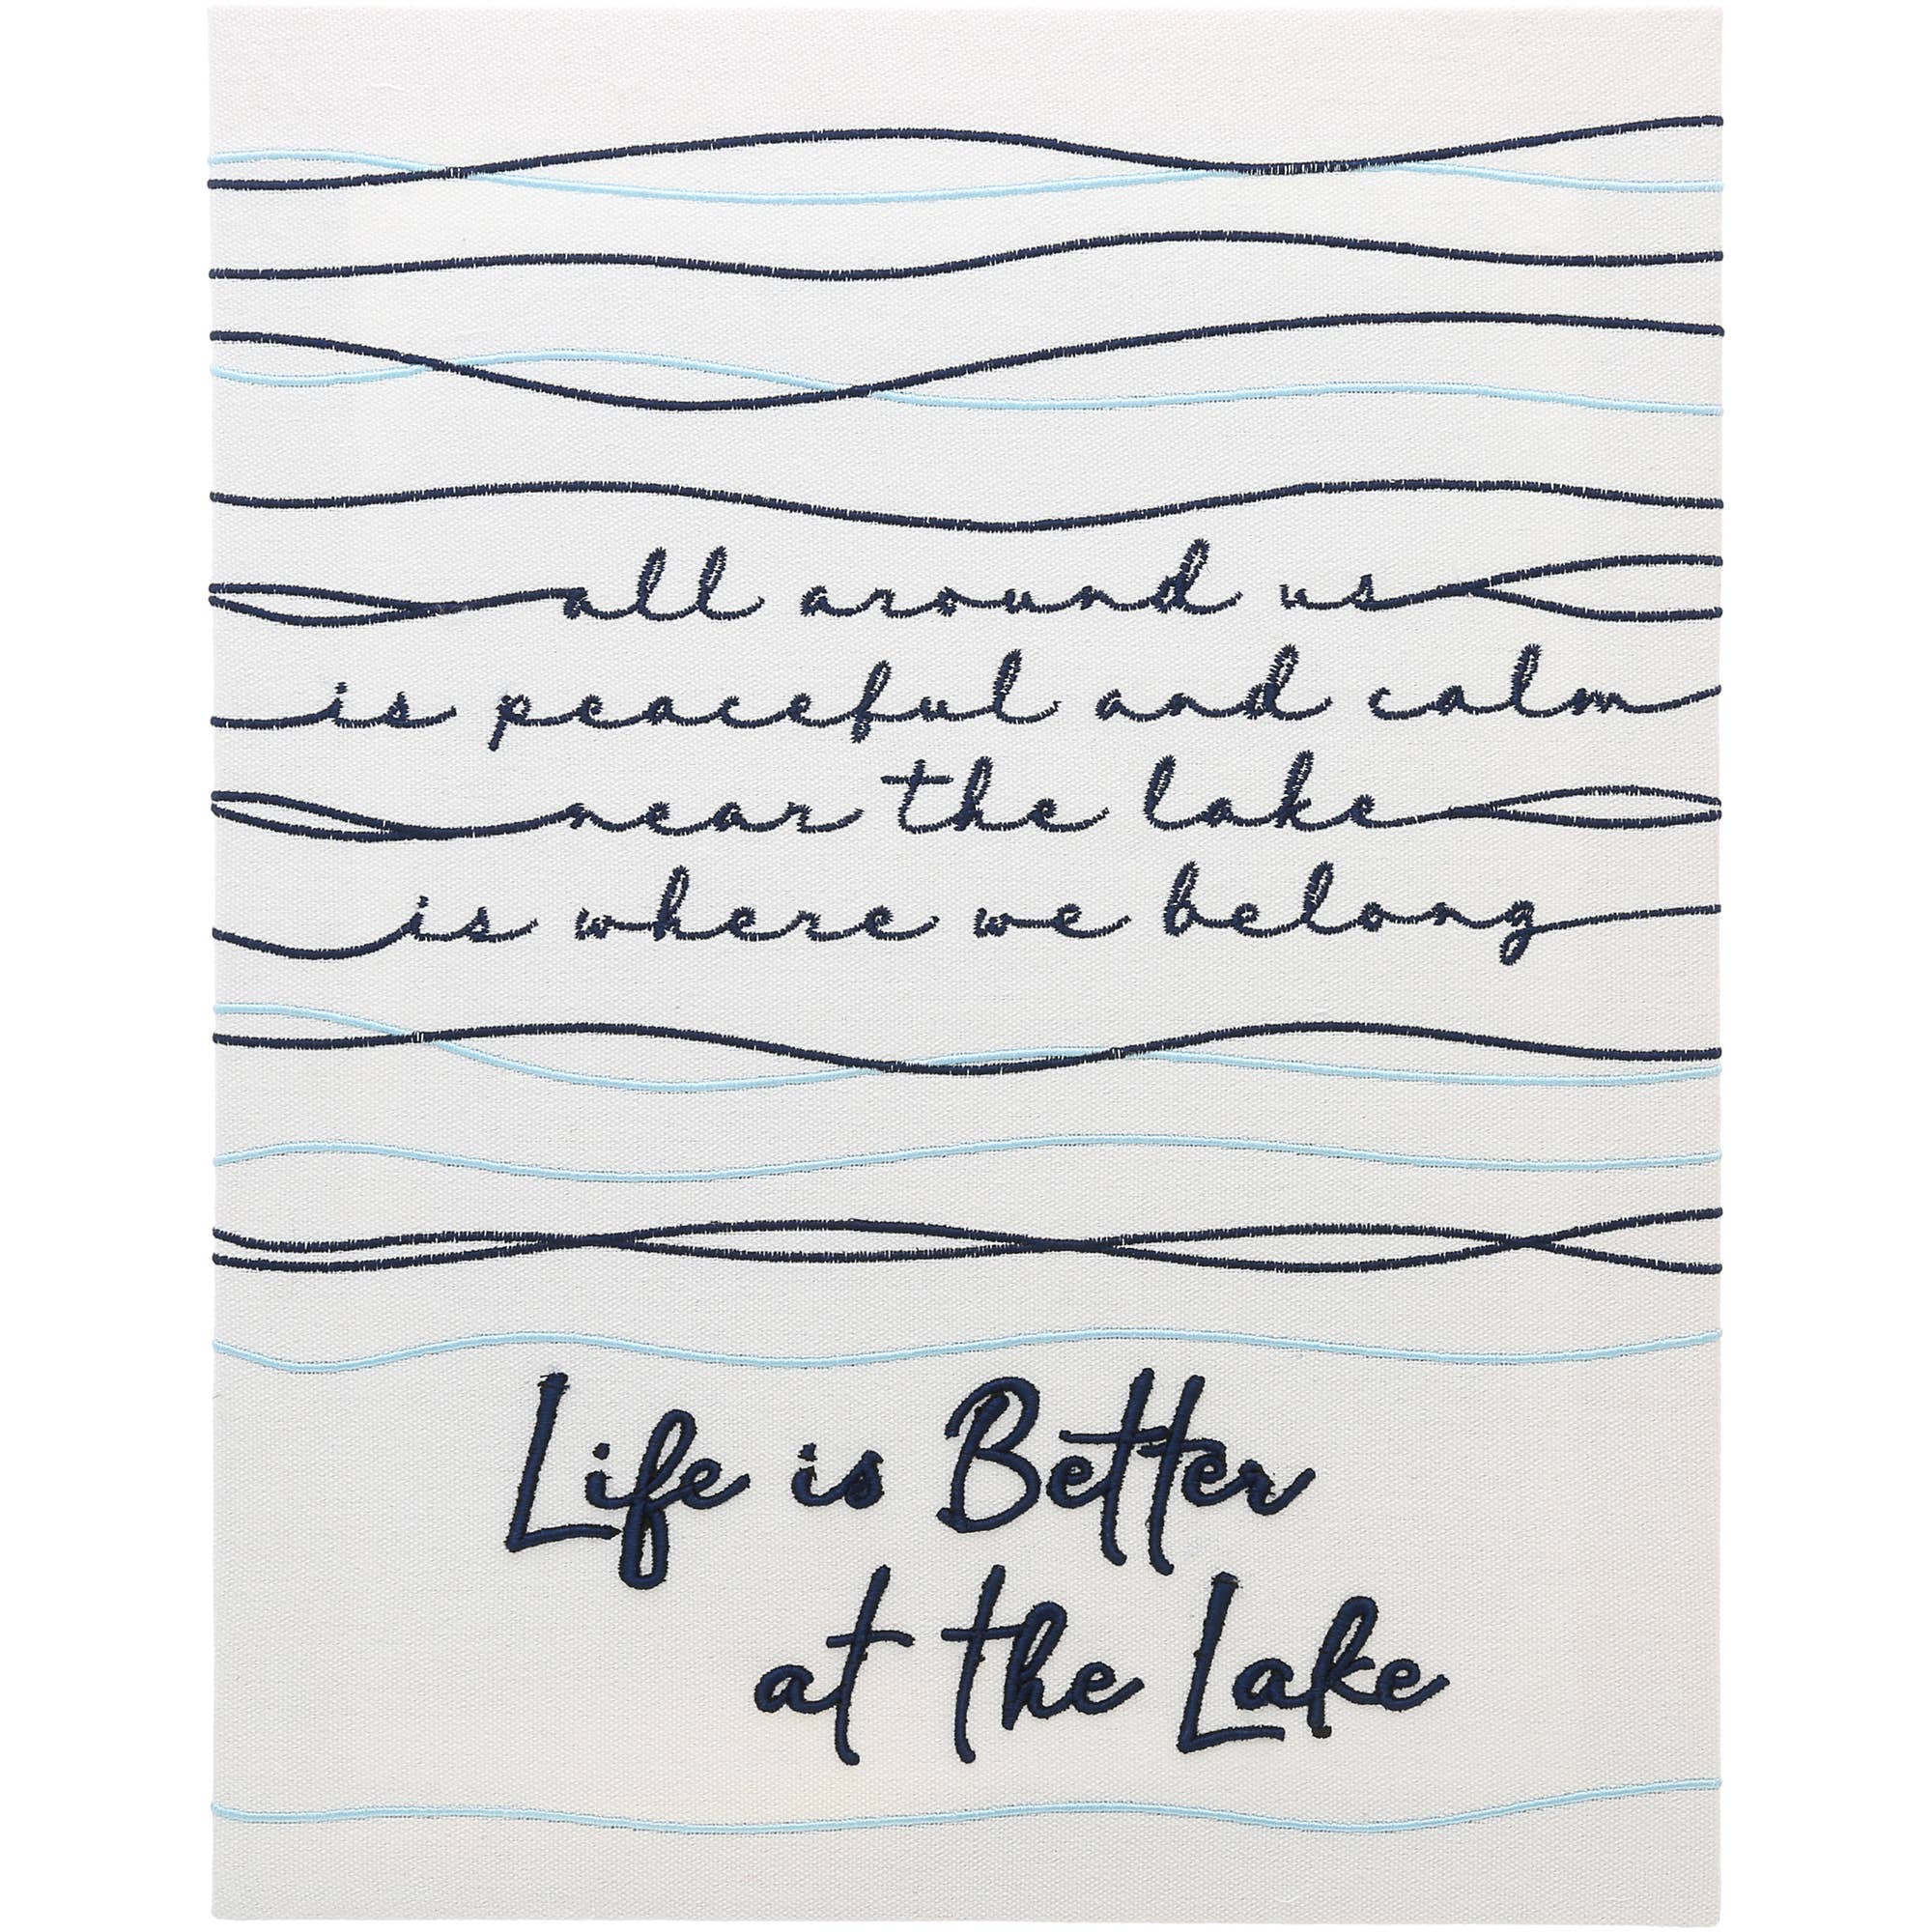 all around us
is peaceful and calm
near the lake
is where we belong
Life is Better
at the Lake